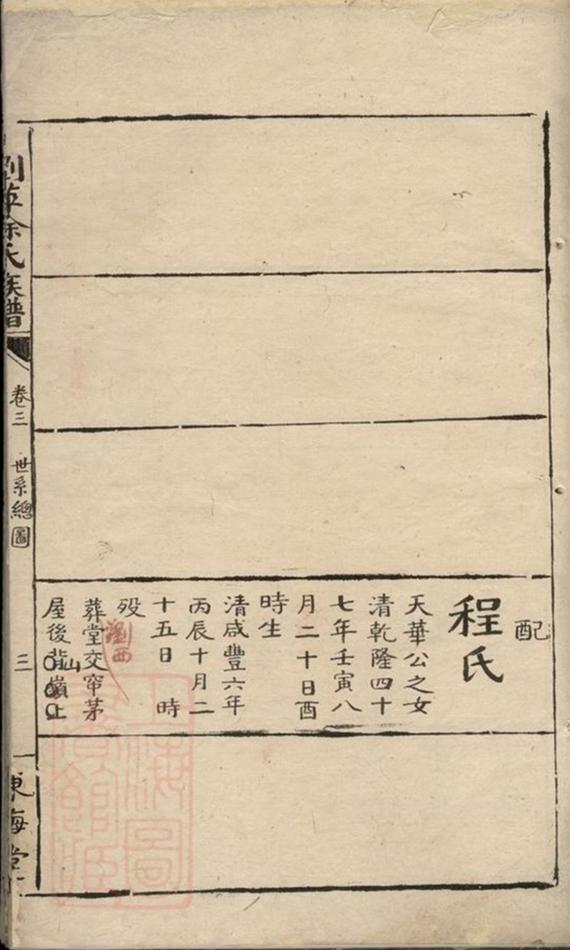 配
程氏
天華公之女
清乾隆四十
七年壬寅八
月二十日酉
時生
清咸豐六年
丙辰十月二
十五日　時
殁
瀏西
葬堂交帘茅
屋後背山嶺上
瀏萍徐氏族譜
卷三
世系總圖
三
東海堂